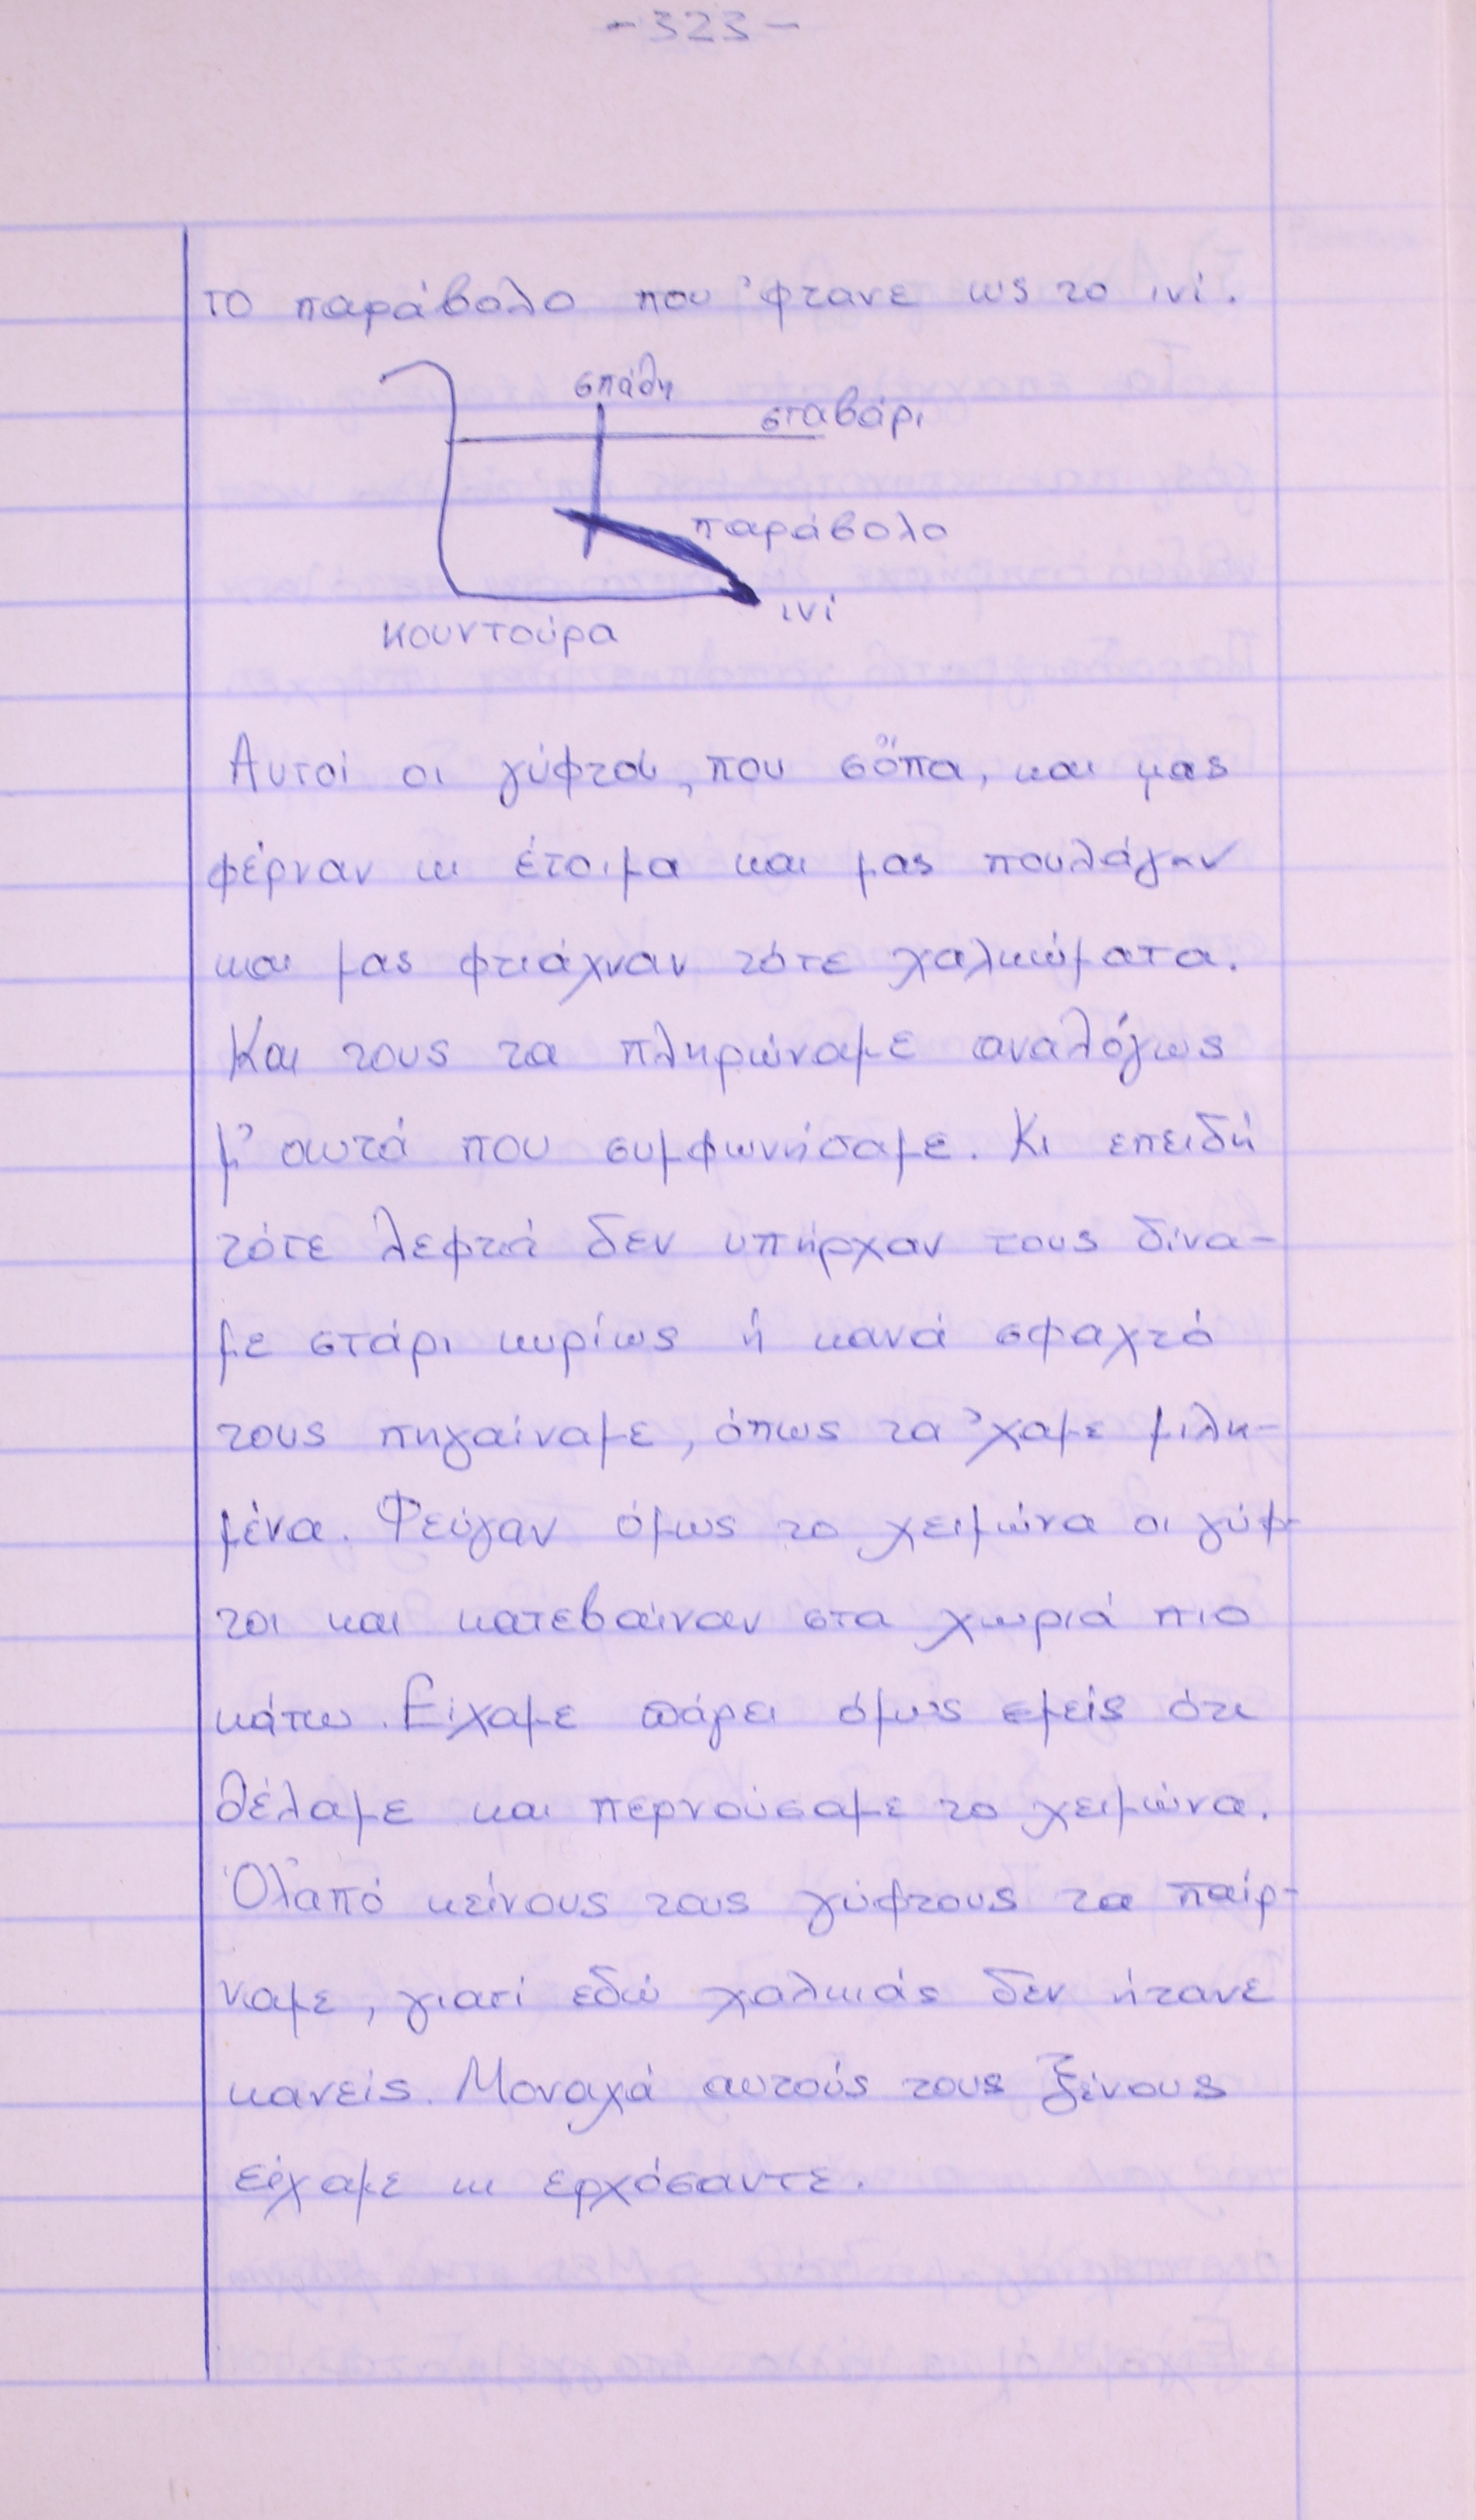 -323-
το παράβολο που 'φτανε ως το ινί.
σπάθη
σταβάρι
παράβολο
ινί
κουντούρα
Αυτοί οι γύφτοι, που σὄπα, και μας
φέρναν κι έτοιμα και μας πουλάγαν
και μας φτιάχναν τότε χαλκώματα.
Και τους τα πληρώναμε αναλόγως
μ' αυτά που συμφωνήσαμε. Κι επειδή
τότε λεφτά δεν υπήρχαν τους δίνα-
με στάρι κυρίως ή κανά σφαχτό
τους πηγαίναμε, όπως τα 'χαμε μιλη-
μένα. Φεύγαν όμως το χειμώνα οι γύφ-
τοι και κατεβαίναν στα χωριά πιο
κάτω. Είχαμε πάρει όμως εμείς ότι
θέλαμε και περνούσαμε το χειμώνα.
Όλ' από κείνους τους γύφτους τα παίρ-
ναμε, γιατί εδώ χαλκιάς δεν ήτανε
κανείς. Μοναχά αυτούς τους ξένους
είχαμε κι ερχόσαντε.